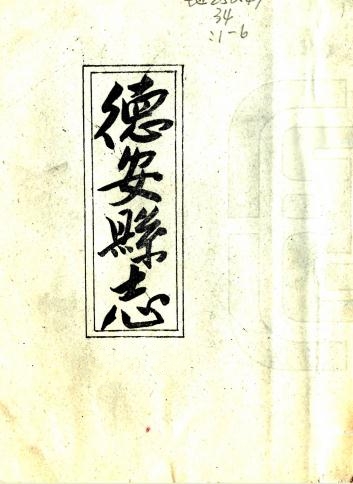 34
:1-6
德安縣志